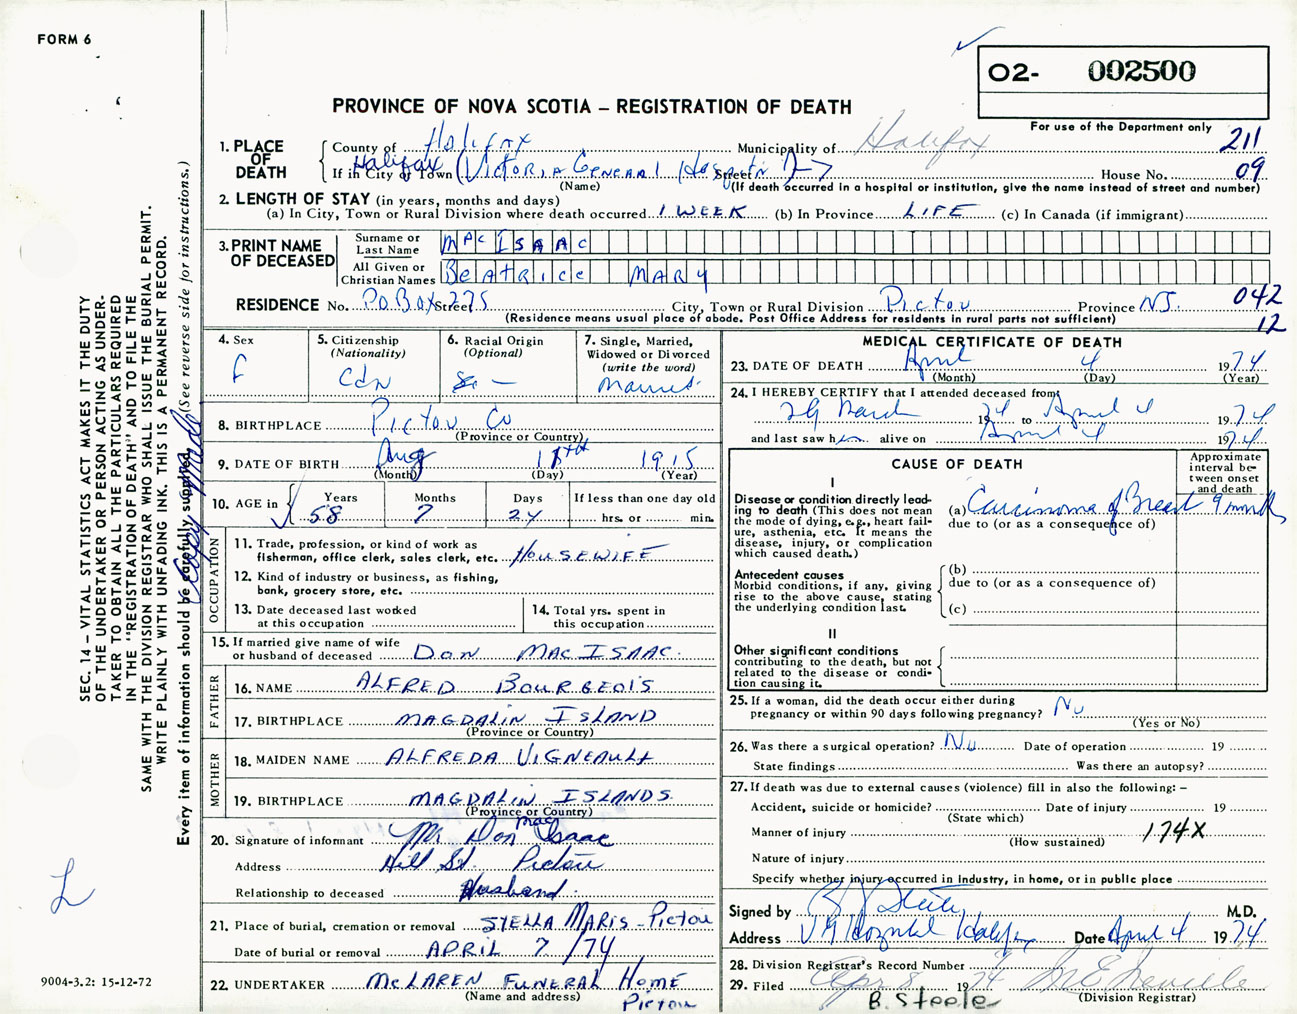 FORM 6
O2- 002500
PROVINCE OF NOVA SCOTIA – REGISTRATION OF DEATH
For use of the Department only
211
09
1. PLACE OF DEATH
County of Halifax Municipality of Halifax
If in City or Town Halifax (Victoria General Hospital) Street House No.
(Name) (If death occurred in a hospital or institution, give the name instead of street and number)
2. LENGTH OF STAY (in years, months and days)
(a) In City, Town or Rural Division where death occurred 1 WEEK (b) In Province LIFE (c) In Canada (if immigrant)
3. PRINT NAME OF DECEASED
Surname or Last Name MacISAAC
All Given or Christian Names BEATRICE MARY
RESIDENCE No. P.O. Box 275 Street City, Town or Rural Division Pictou Province N.S. 042
(Residence means usual place of abode. Post Office Address for residents in rural parts not sufficient) 12
4. Sex F
5. Citizenship (Nationality) Cdn
6. Racial Origin (Optional) –
7. Single, Married, Widowed or Divorced (write the word) Married
8. BIRTHPLACE Pictou Co
(Province or Country)
9. DATE OF BIRTH Aug 11th 1915
(Month) (Day) (Year)
10. AGE in Years 58 Months 7 Days 24 If less than one day old hrs. or min.
OCCUPATION
11. Trade, profession, or kind of work as fisherman, office clerk, sales clerk, etc. HOUSEWIFE
12. Kind of industry or business, as fishing, bank, grocery store, etc.
13. Date deceased last worked at this occupation
14. Total yrs. spent in this occupation
15. If married give name of wife or husband of deceased DON MACISAAC.
FATHER
16. NAME ALFRED BOURGEOIS
17. BIRTHPLACE MAGDALIN ISLAND
(Province or Country)
MOTHER
18. MAIDEN NAME ALFREDA VIGNEAULT
19. BIRTHPLACE MAGDALIN ISLANDS
(Province or Country)
20. Signature of informant Mr Don MacIsaac
Address Hill St. Pictou
Relationship to deceased Husband.
21. Place of burial, cremation or removal STELLA MARIS - Pictou
Date of burial or removal APRIL 7 /74
22. UNDERTAKER McLAREN FUNERAL HOME
(Name and address) Pictou
MEDICAL CERTIFICATE OF DEATH
23. DATE OF DEATH April 4 1974
(Month) (Day) (Year)
24. I HEREBY CERTIFY that I attended deceased from
29 March 1974 to April 4 1974
and last saw him alive on April 4 1974
CAUSE OF DEATH
Approximate interval between onset and death
I
Disease or condition directly leading to death (This does not mean the mode of dying, e.g., heart failure, asthenia, etc. It means the disease, injury, or complication which caused death.)
(a) Carcinoma of Breast 9 months
due to (or as a consequence of)
Antecedent causes
Morbid conditions, if any, giving rise to the above cause, stating the underlying condition last.
(b)
due to (or as a consequence of)
(c)
II
Other significant conditions contributing to the death, but not related to the disease or condition causing it.
25. If a woman, did the death occur either during pregnancy or within 90 days following pregnancy? No
(Yes or No)
26. Was there a surgical operation? No Date of operation 19
State findings Was there an autopsy?
27. If death was due to external causes (violence) fill in also the following: –
Accident, suicide or homicide? Date of injury 19
(State which)
Manner of injury 174X
(How sustained)
Nature of injury
Specify whether injury occurred in Industry, in home, or in public place
Signed by M.D.
Address V G Hospital Halifax Date April 4 1974
28. Division Registrar's Record Number
29. Filed Apr 8 1974
(Division Registrar)
B. Steele
SEC. 14 – VITAL STATISTICS ACT MAKES IT THE DUTY
OF THE UNDERTAKER OR PERSON ACTING AS UNDER-
TAKER TO OBTAIN ALL THE PARTICULARS REQUIRED
IN THE "REGISTRATION OF DEATH" AND TO FILE THE
SAME WITH THE DIVISION REGISTRAR WHO SHALL ISSUE THE BURIAL PERMIT.
WRITE PLAINLY WITH UNFADING INK. THIS IS A PERMANENT RECORD.
Every item of information should be carefully supplied. (See reverse side for instructions.)
L
9004-3.2: 15-12-72